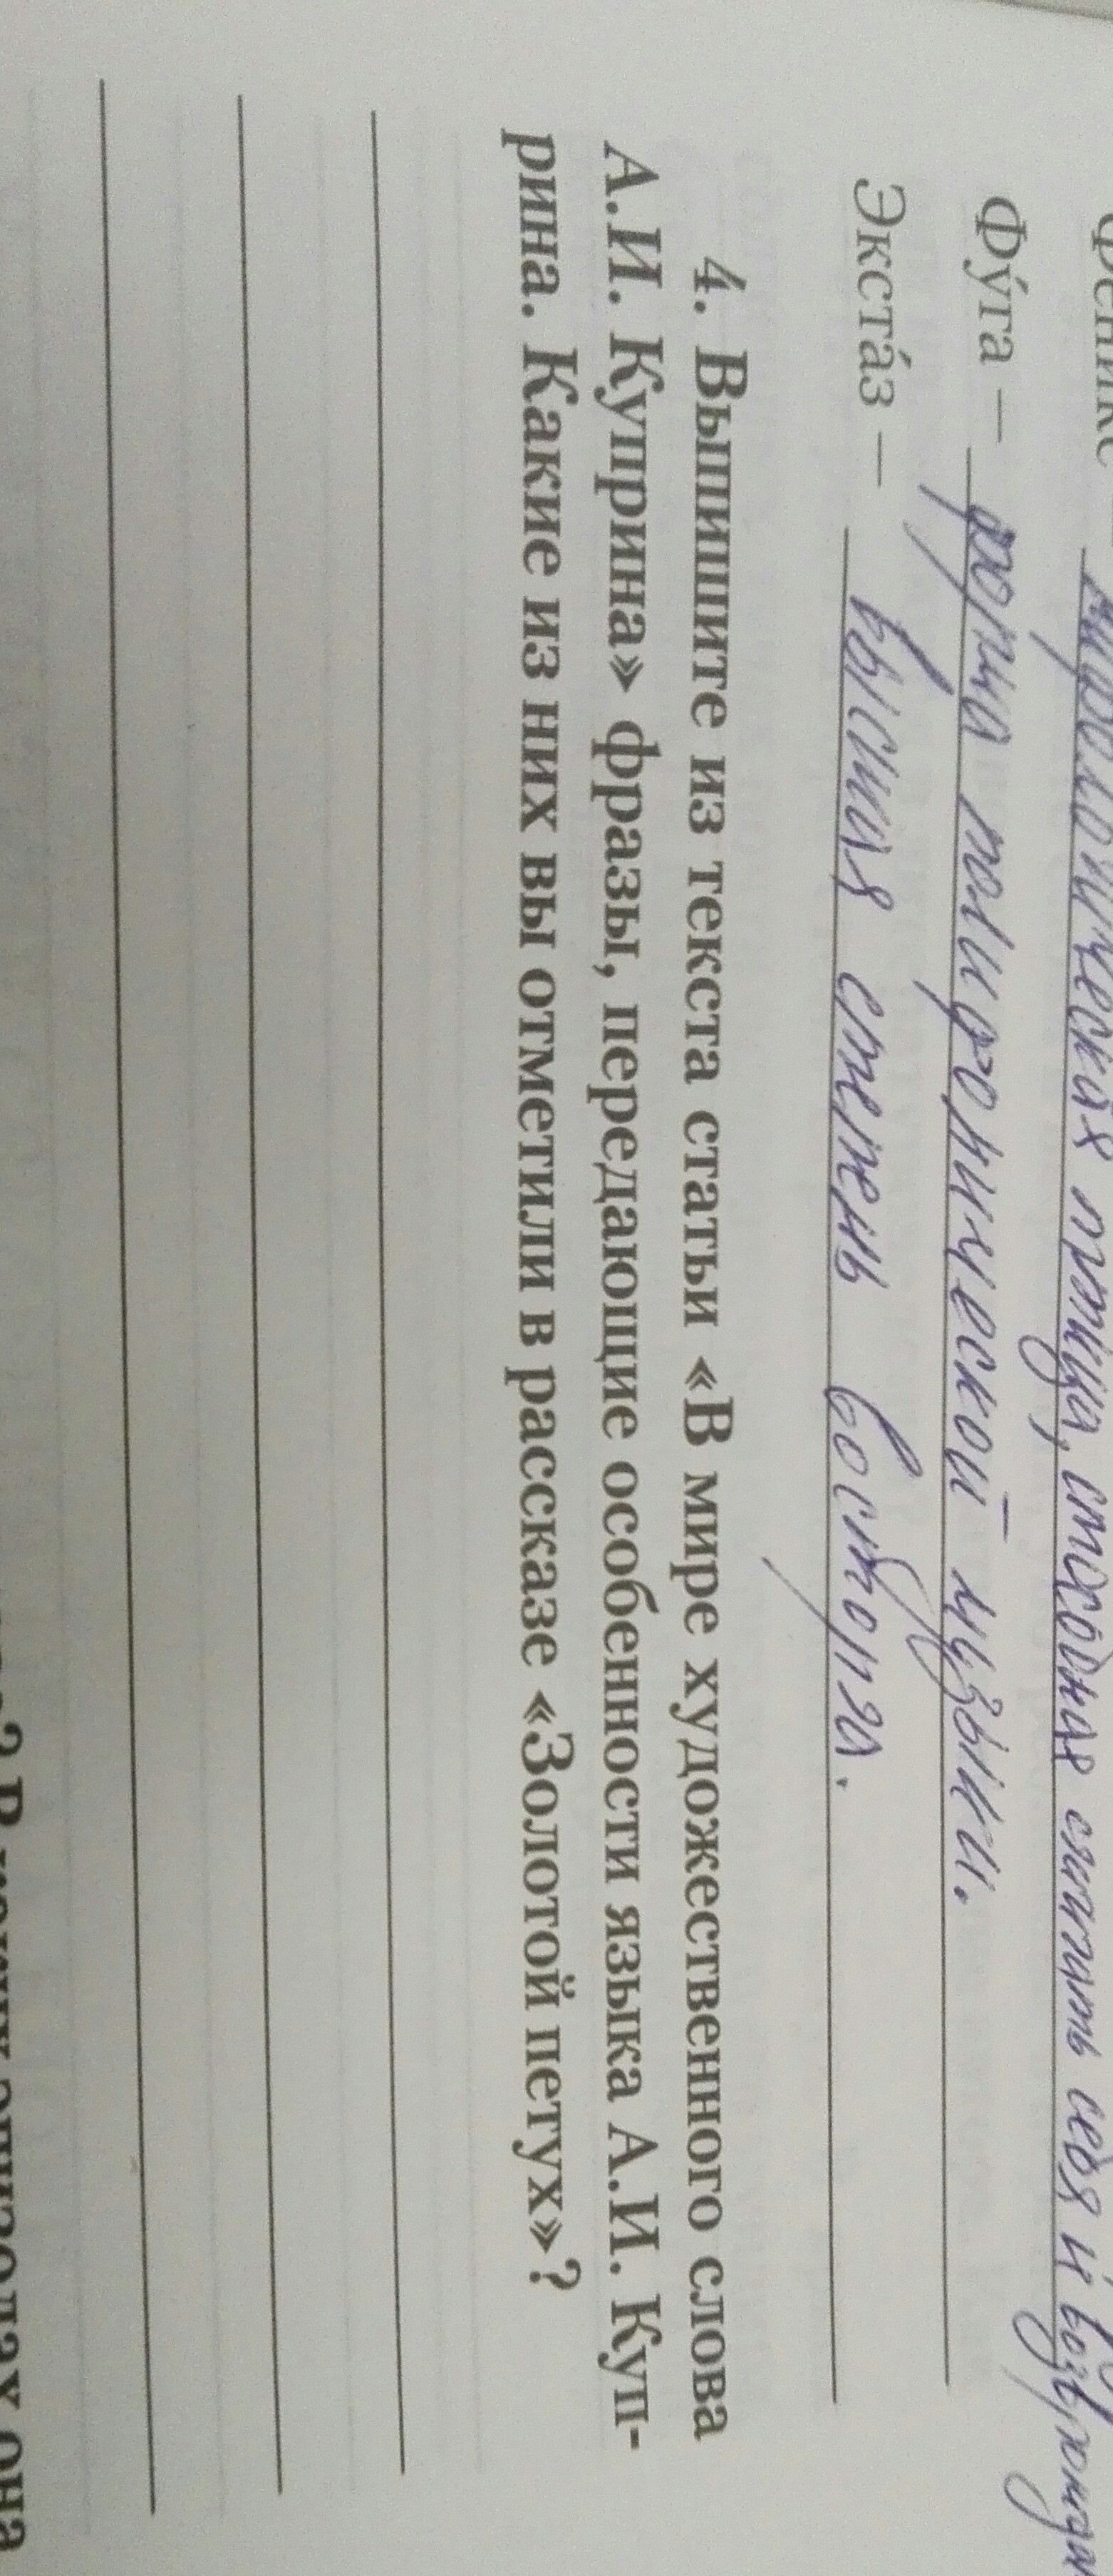 мифологическая птица, способная сжигать себя и
Фу́га – форма полифонической музыки.
Экста́з – высшая степень восторга.
4. Выпишите из текста статьи «В мире художественного слова
А.И. Куприна» фразы, передающие особенности языка А.И. Куп-
рина. Какие из них вы отметили в рассказе «Золотой петух»?
эпизодах она